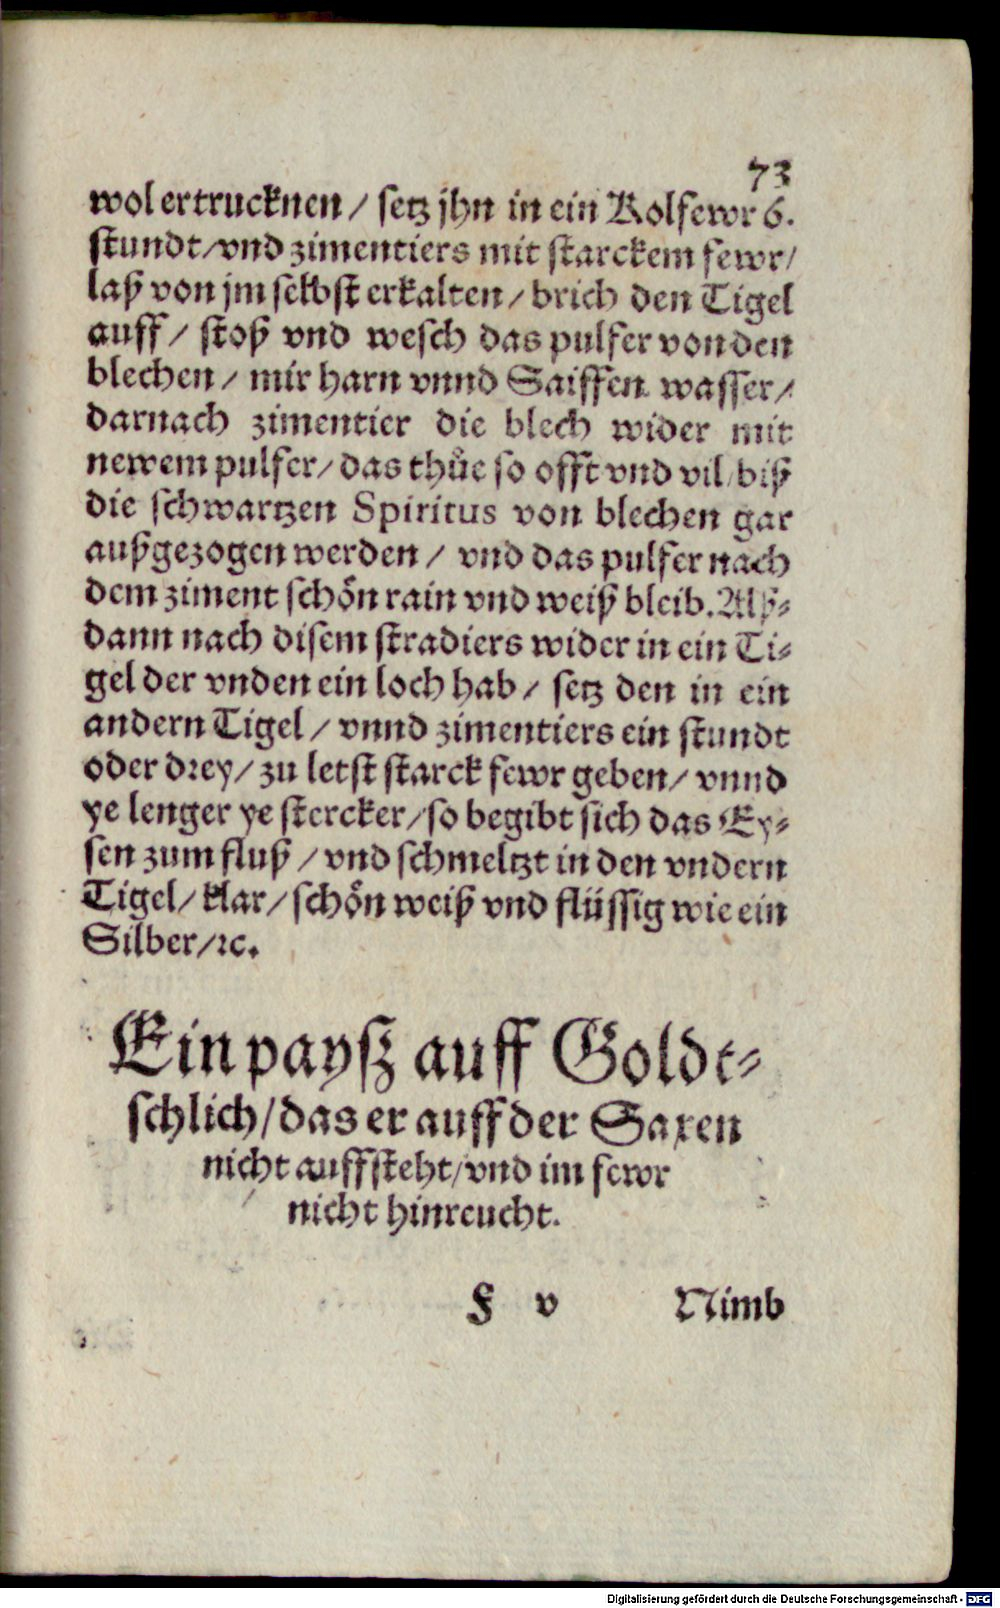 73
wol ertrucknen / setz jhn in ein Kolfewr 6.
stundt / vnd zimentiers mit starckem fewr /
laß von jm selbst erkalten / brich den Tigel
auff / stoß vnd wesch das pulfer von den
blechen / mir harn vnnd Saiffen wasser /
darnach zimentier die blech wider mit
newem pulfer / das thůe so offt vnd vil / biß
die schwartzen Spiritus von blechen gar
außgezogen werden / vnd das pulfer nach
dem ziment schön rain vnd weiß bleib. Alß-
dann nach disem stradiers wider in ein Ti-
gel der vnden ein loch hab / setz den in ein
andern Tigel / vnnd zimentiers ein stundt
oder drey / zu letst starck fewr geben / vnnd
ye lenger ye stercker / so begibt sich das Ey-
sen zum fluß / vnd schmeltzt in den vndern
Tigel / klar / schön weiß vnd flüssig wie ein
Silber / ꝛc.
Ein paysz auff Goldt-
schlich / das er auff der Saxen
nicht auffsteht / vnd im fewr
nicht hinreucht.
F v Nimb
Digitalisierung gefördert durch die Deutsche Forschungsgemeinschaft - DFG